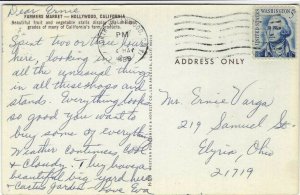 Dear Ernie
FARMERS MARKET — HOLLYWOOD, CALIFORNIA
Beautiful fruit and vegetable stalls display the highest
grades of many of California's farm products.
Spent two or three hours
here, looking at
all the unusual things
in all these shops and
stands. Everything looks
so good you want to
buy some of everything
Weather continues cool
& Cloudy. They have a
beautiful big yard here
& Cactus garden Love Eva
PM
ADDRESS ONLY
UNITED STATES
WASHINGTON
Mr. Ernie Varga
219 Samuel St.
Elyria, Ohio
21719